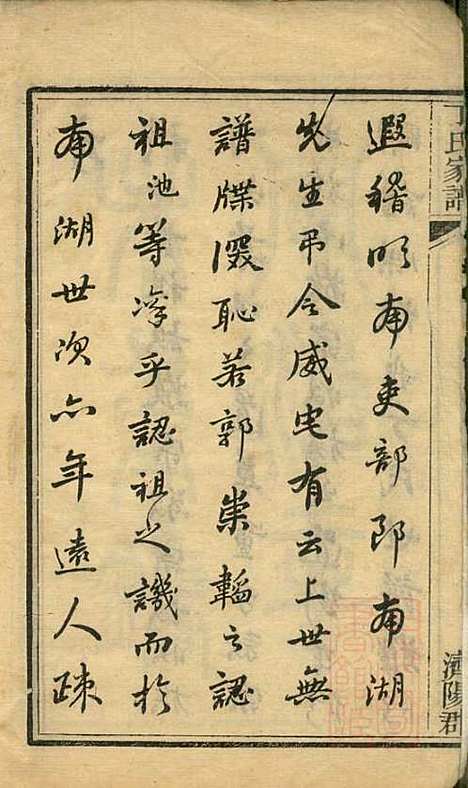 丁氏家譜
濟陽郡
遐稽明南吏部郎南湖
先生弔令威宅有云上世無
譜牒深恥若郭崇韜之認
祖池等濟乎認祖之譏而於
南湖世次亦年遠人疎